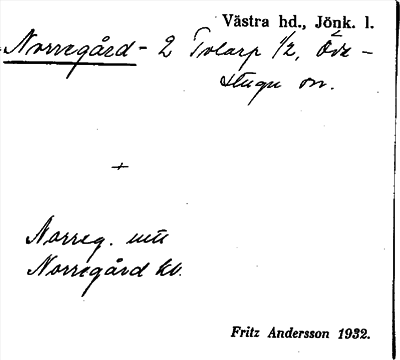 Västra hd., Jönk. l.
Norregård - 2 Tolarp 1/2, Öde-
stugu sn.
+
Norreg. utt
Norregård kb.
Fritz Andersson 1932.